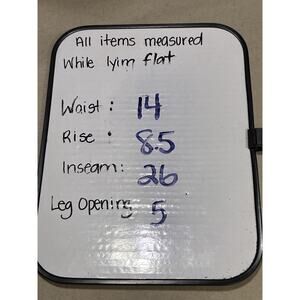 All items measured
While lyim flat
Waist: 14
Rise: 8.5
Inseam: 26
Leg Opening 5